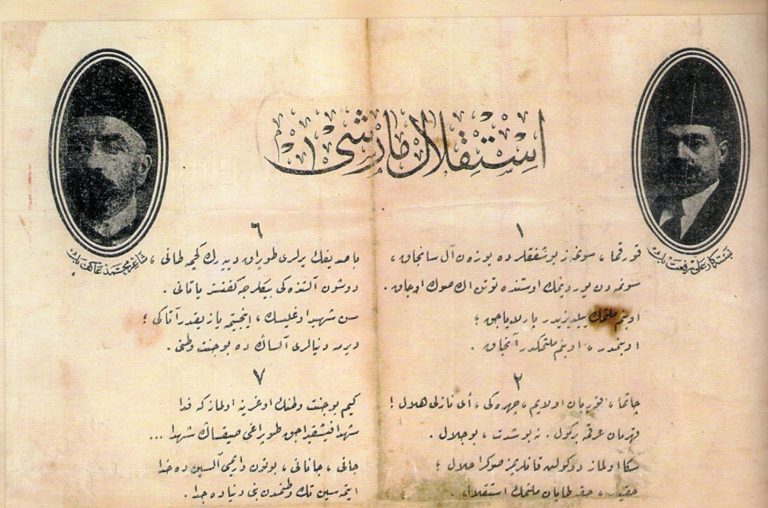 استقلال مارشی
بسته‌كار علی رفعت بك
شاعر محمد عاكف بك
١
قورقما، سونمز بو شفقلرده یوزن آل سانجاق،
سونمه‌دن یوردیمك اوستنده توتن اك صوك اوجاق.
او بنم ملتمك ییلدیزیدر پارلایاجق؛
او بنمدر، او بنم ملتمكدر آنجاق.
٢
چاتما، قوربان اولایم، چهره‌كی، ای نازلی هلال!
قهرمان عرقمه بر كول. نه بو شدت، بو جلال.
سكا اولماز دوكولن قانلریمز صوكرا حلال؛
حقیدر، حقه طاپان ملتمك استقلال.
٦
باصدیغك یرلری طوپراق دییه‌رك كچمه طانی،
دوشون آلتنده‌كی بیكلرجه كفنسز یاتانی.
سن شهید اوغلیسك، اینجیتمه یازیقدر آتاكی؛
ویرمه دنیالری آلساك ده بو جنت وطنی.
٧
كیم بو جنت وطنك اوغرینه اولماز كه فدا
شهدا فیشقیراجق طوپراغی صیقساك شهدا...
جانی، جانانی، بوتون واریمی آلسین ده خدا
ایتمه‌سین تك وطنمدن بنی دنیاده جدا.